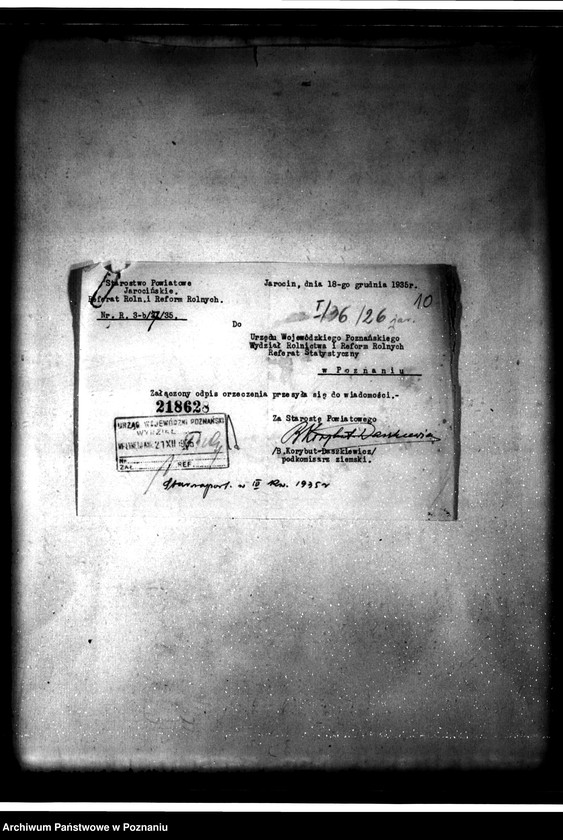 Starostwo Powiatowe
Jarocińskie.
Referat Roln.i Reform Rolnych.
Nr. R. 3-b/ /35.
Jarocin, dnia 18-go grudnia 1935r.
10
I/36/26 jan.
Do
Urzędu Wojewódzkiego Poznańskiego
Wydział Rolnictwa i Reform Rolnych
Referat Statystyczny
w Poznaniu
Załączony odpis orzeczenia przesyła się do wiadomości.-
218628
URZĄD WOJEWÓDZKI POZNAŃSKI
WYDZIAŁ
WPŁYNĘŁO DNIA 21 XII 1935
Nr.
ZAŁ. REF.
Za Starostę Powiatowego
B Korybut-Daszkiewicz
/B.Korybut-Daszkiewicz/
podkomisarz ziemski.
w IV kw. 1935 r
Archiwum Państwowe w Poznaniu